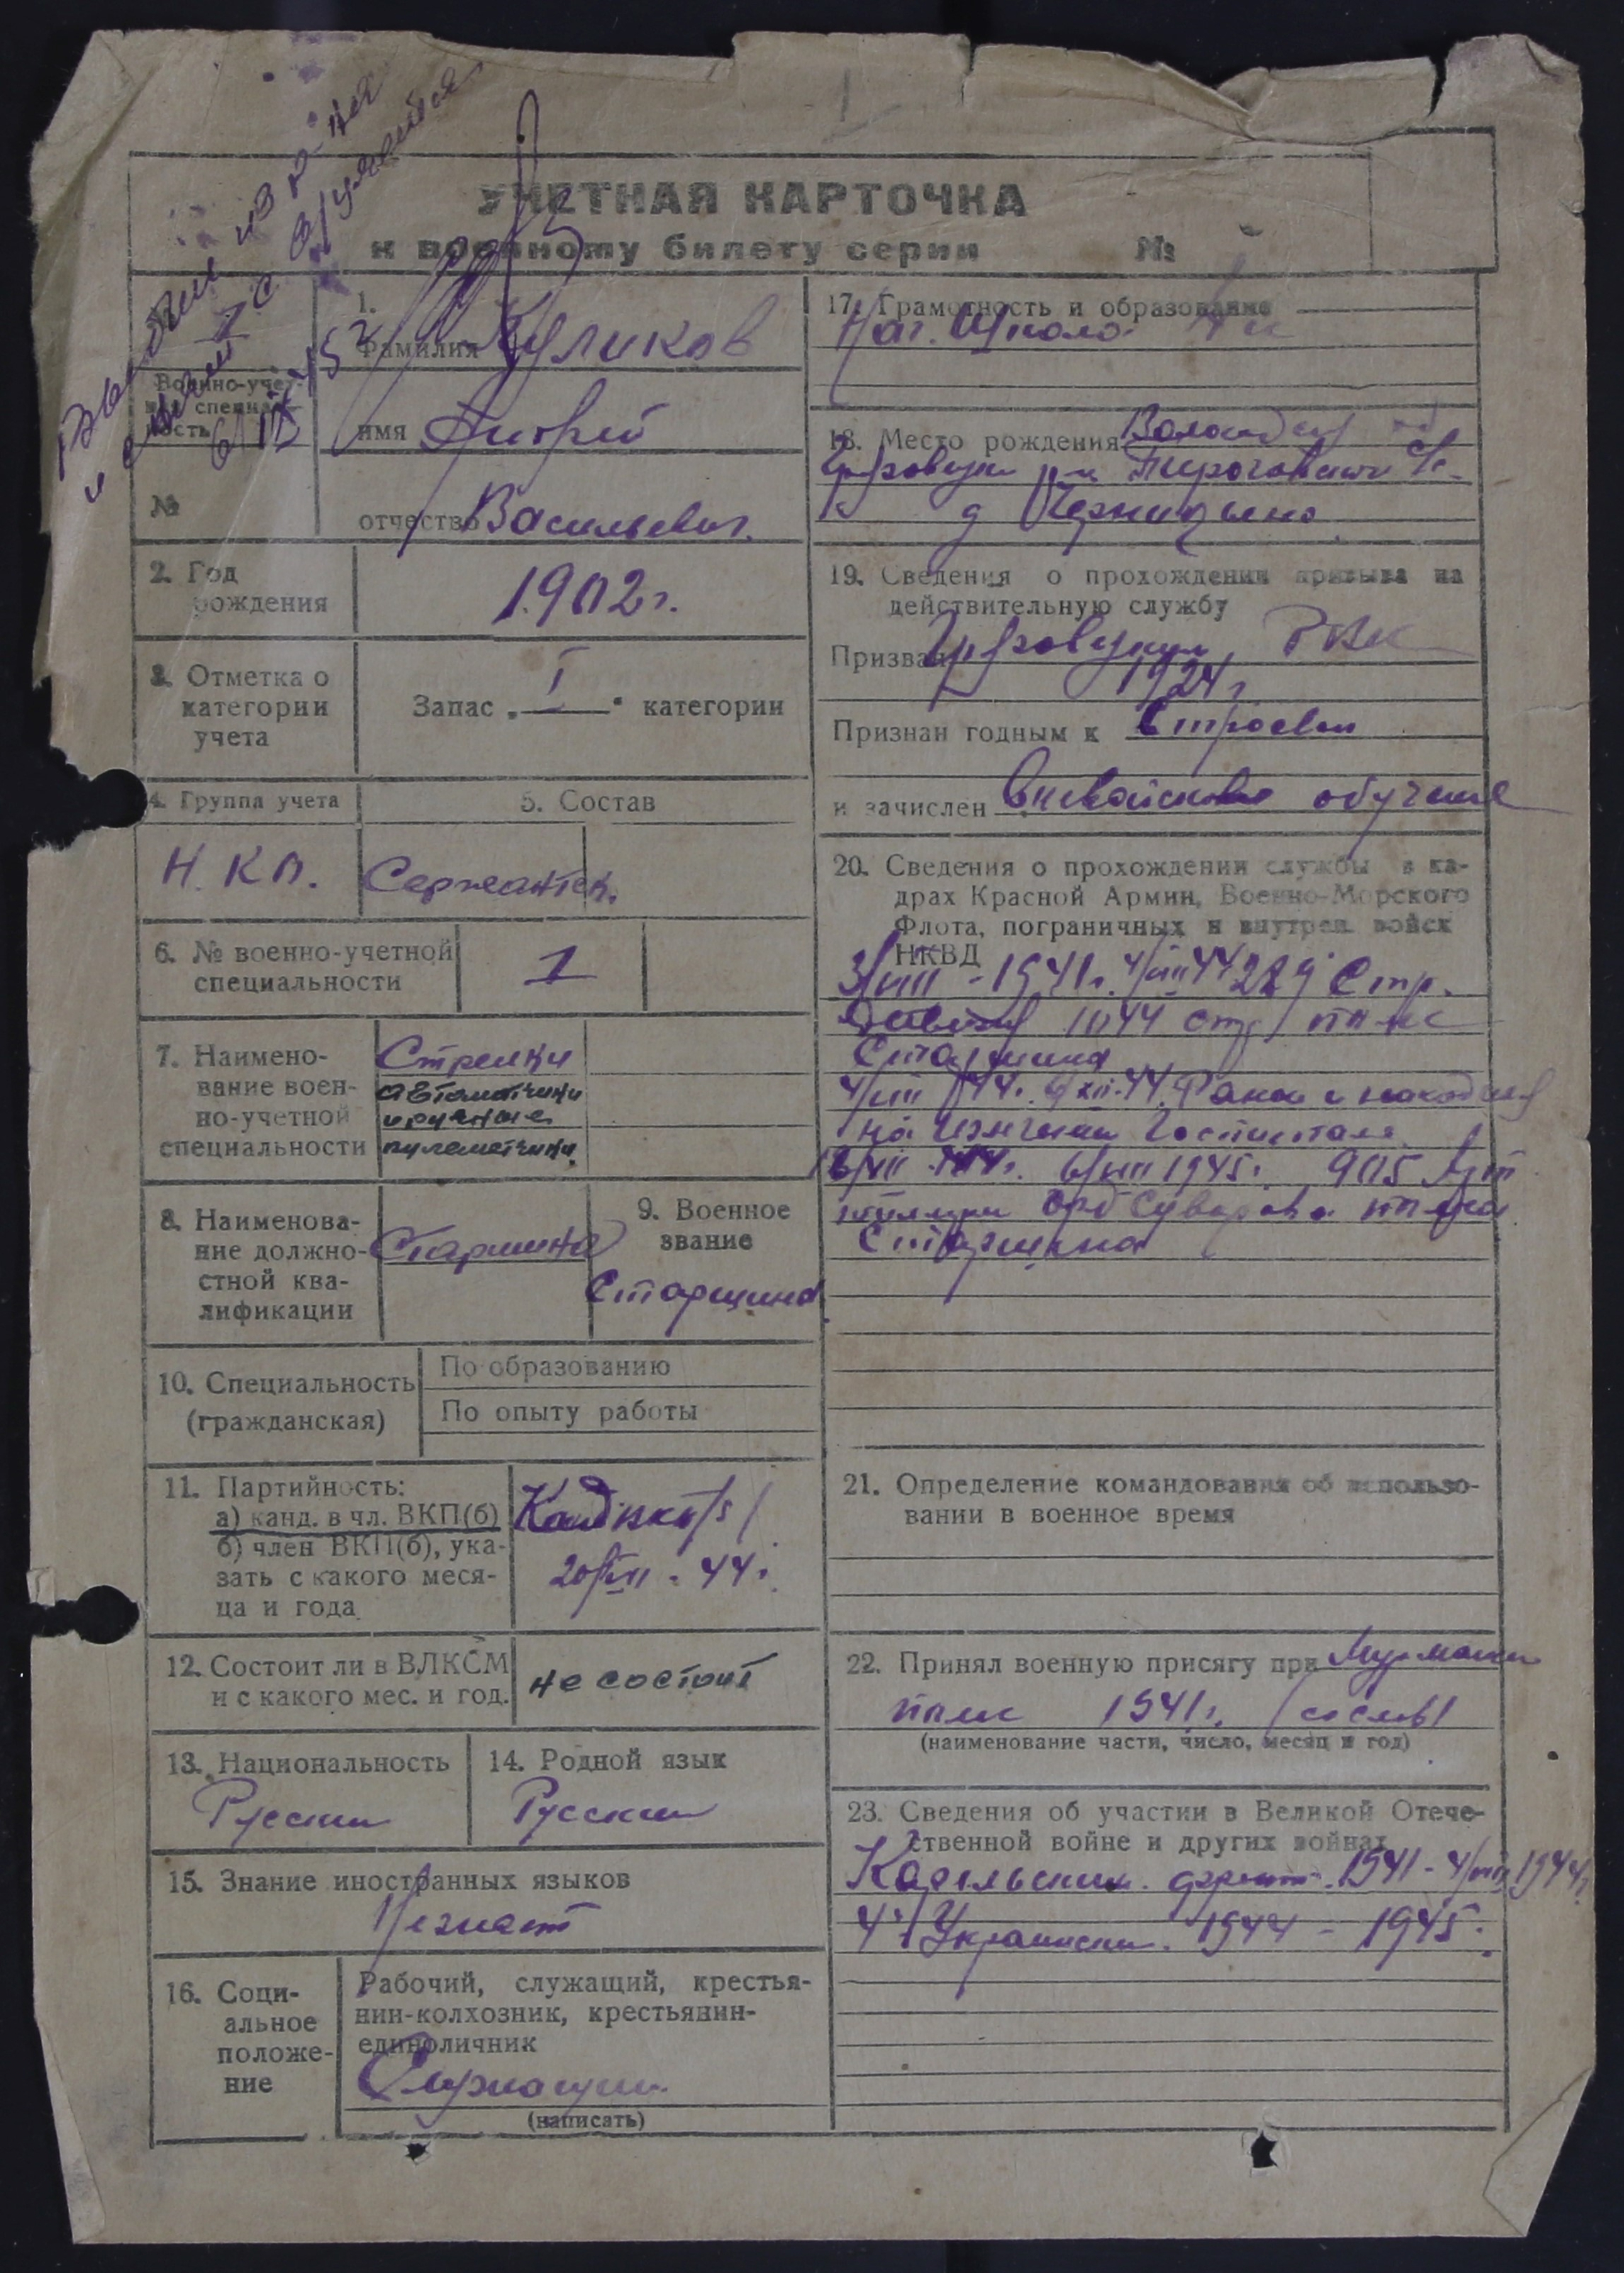 УЧЕТНАЯ КАРТОЧКА
к военному билету серии №
Выбыл из р-на
и с учета с
Военно-учет-
ная специаль-
ность
№
1.
Фамилия Куликов
имя Андрей
отчество Васильевич.
2. Год
рождения
1902 г.
3. Отметка о
категории
учета
Запас „ I “ категории
4. Группа учета
5. Состав
Н. К П.
Сержантск.
6. № военно-учетной
специальности
1
7. Наимено-
вание воен-
но-учетной
специальности
Стрелки
автоматчики
и ручные
пулеметчики.
8. Наименова-
ние должно-
стной ква-
лификации
Старшина
9. Военное
звание
Старшина
10. Специальность
(гражданская)
По образованию
По опыту работы
11. Партийность:
а) канд. в чл. ВКП(б)
б) член ВКП(б), ука-
зать с какого меся-
ца и года
44 г.
12. Состоит ли в ВЛКСМ
и с какого мес. и год.
не состоит
13. Национальность
Русский
14. Родной язык
Русский
15. Знание иностранных языков
Незнает
16. Соци-
альное
положе-
ние
Рабочий, служащий, крестья-
нин-колхозник, крестьянин-
единоличник
Служащий
(написать)
17. Грамотность и образование
Нач. Школа
18. Место рождения Вологодская об
р-н
д
19. Сведения о прохождении призыва на
действительную службу
Призван РВК
1924 г
Признан годным к Строевой
и зачислен Вневойсковое обучение
20. Сведения о прохождении службы в ка-
драх Красной Армии, Военно-Морского
Флота, пограничных и внутрен. войск
НКВД
3/VIII - 1941 г. 4/VIII 44 289 Стр.
Дивизия 1044 стр полк
Старшина
4/VIII 44 г. 6/XII-44. Ранен и находился
на излечении Госпитале
6/VIII 1945 г. 905
полка
Старшина
21. Определение командования об использо-
вании в военное время
22. Принял военную присягу при
полк 1941 г. (со слов)
(наименование части, число, месяц и год)
23. Сведения об участии в Великой Отече-
ственной войне и других войнах
Карельский фронт. 1941 - 4/VIII 1944 г.
4й Украинский. 1944 - 1945 г.